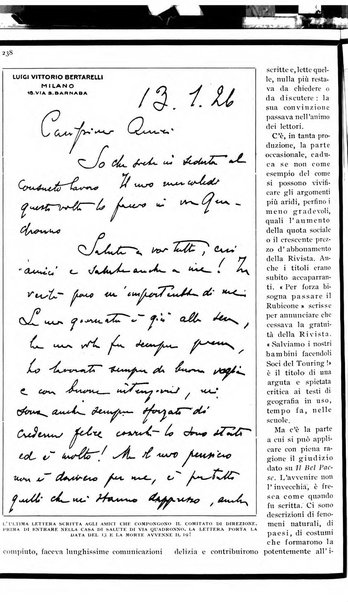 238
LUIGI VITTORIO BERTARELLI
MILANO
15. VIA S. BARNABA
13.1.26
Carissimi Amici
So che siete in seduta al
consueto lavoro Il mio mercoledì
questa volta lo faccio in via Qua-
dronno
Salute a voi tutti, cari
amici e salute anche a me! In
verità poco m'importerebbe di me
La mia giornata è già alla sera,
ho lavorato sempre di buona voglia
e con buone intenzioni, mi
sono anche sempre sforzato di
credermi felice cosicché lo sono stato
ed è molto! Ma il mio pensiero
non è davvero per me, è per tutti
quelli che mi stanno dappresso, anche
L'ULTIMA LETTERA SCRITTA AGLI AMICI CHE COMPONGONO IL COMITATO DI DIREZIONE,
PRIMA DI ENTRARE NELLA CASA DI SALUTE DI VIA QUADRONNO. LA LETTERA PORTA LA
DATA DEL 13 E LA MORTE AVVENNE IL 19!
compiuto, faceva lunghissime comunicazioni
scritte e, lette quel-
le, nulla più resta-
va da chiedere o
da discutere: la
sua convinzione
passava nell'animo
dei lettori.
C'è, in tanta pro-
duzione, la parte
occasionale, cadu-
ca se non come
esempio del come
si possono vivifi-
care gli argomenti
più aridi, perfino i
meno gradevoli,
quali l'aumento
della quota sociale
o il crescente prez-
zo d'abbonamento
della Rivista. An-
che i titoli erano
subito accaparran-
ti. « Per forza bi-
sogna passare il
Rubicone » scrisse
per annunciare che
cessava la gratui-
tà della Rivista.
« Salviamo i nostri
bambini facendoli
Soci del Touring!»
è il titolo di una
arguta e spietata
critica ai testi di
geografia in uso,
tempo fa, nelle
scuole.
Ma c'è la parte
a cui si può appli-
care con piena ra-
gione il giudizio
dato su Il Bel Pae-
se. L'esistenza non
l'invecchia, è fre-
sca come quando
fu scritta. Ci sono
descrizioni di feno-
meni naturali, di
paesi, di costumi
che formarono la
delizia e contribuirono potentemente all'i-